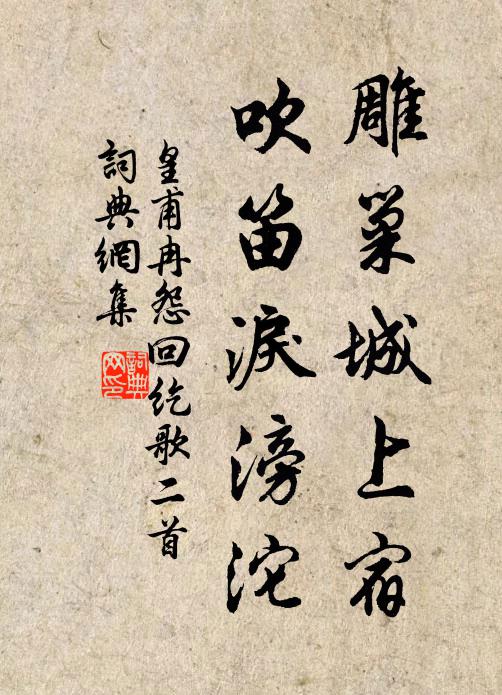 雕巢城上宿
吹笛淚滂沱
皇甫冉怨回紇歌二首
詞典網集
詞典網印